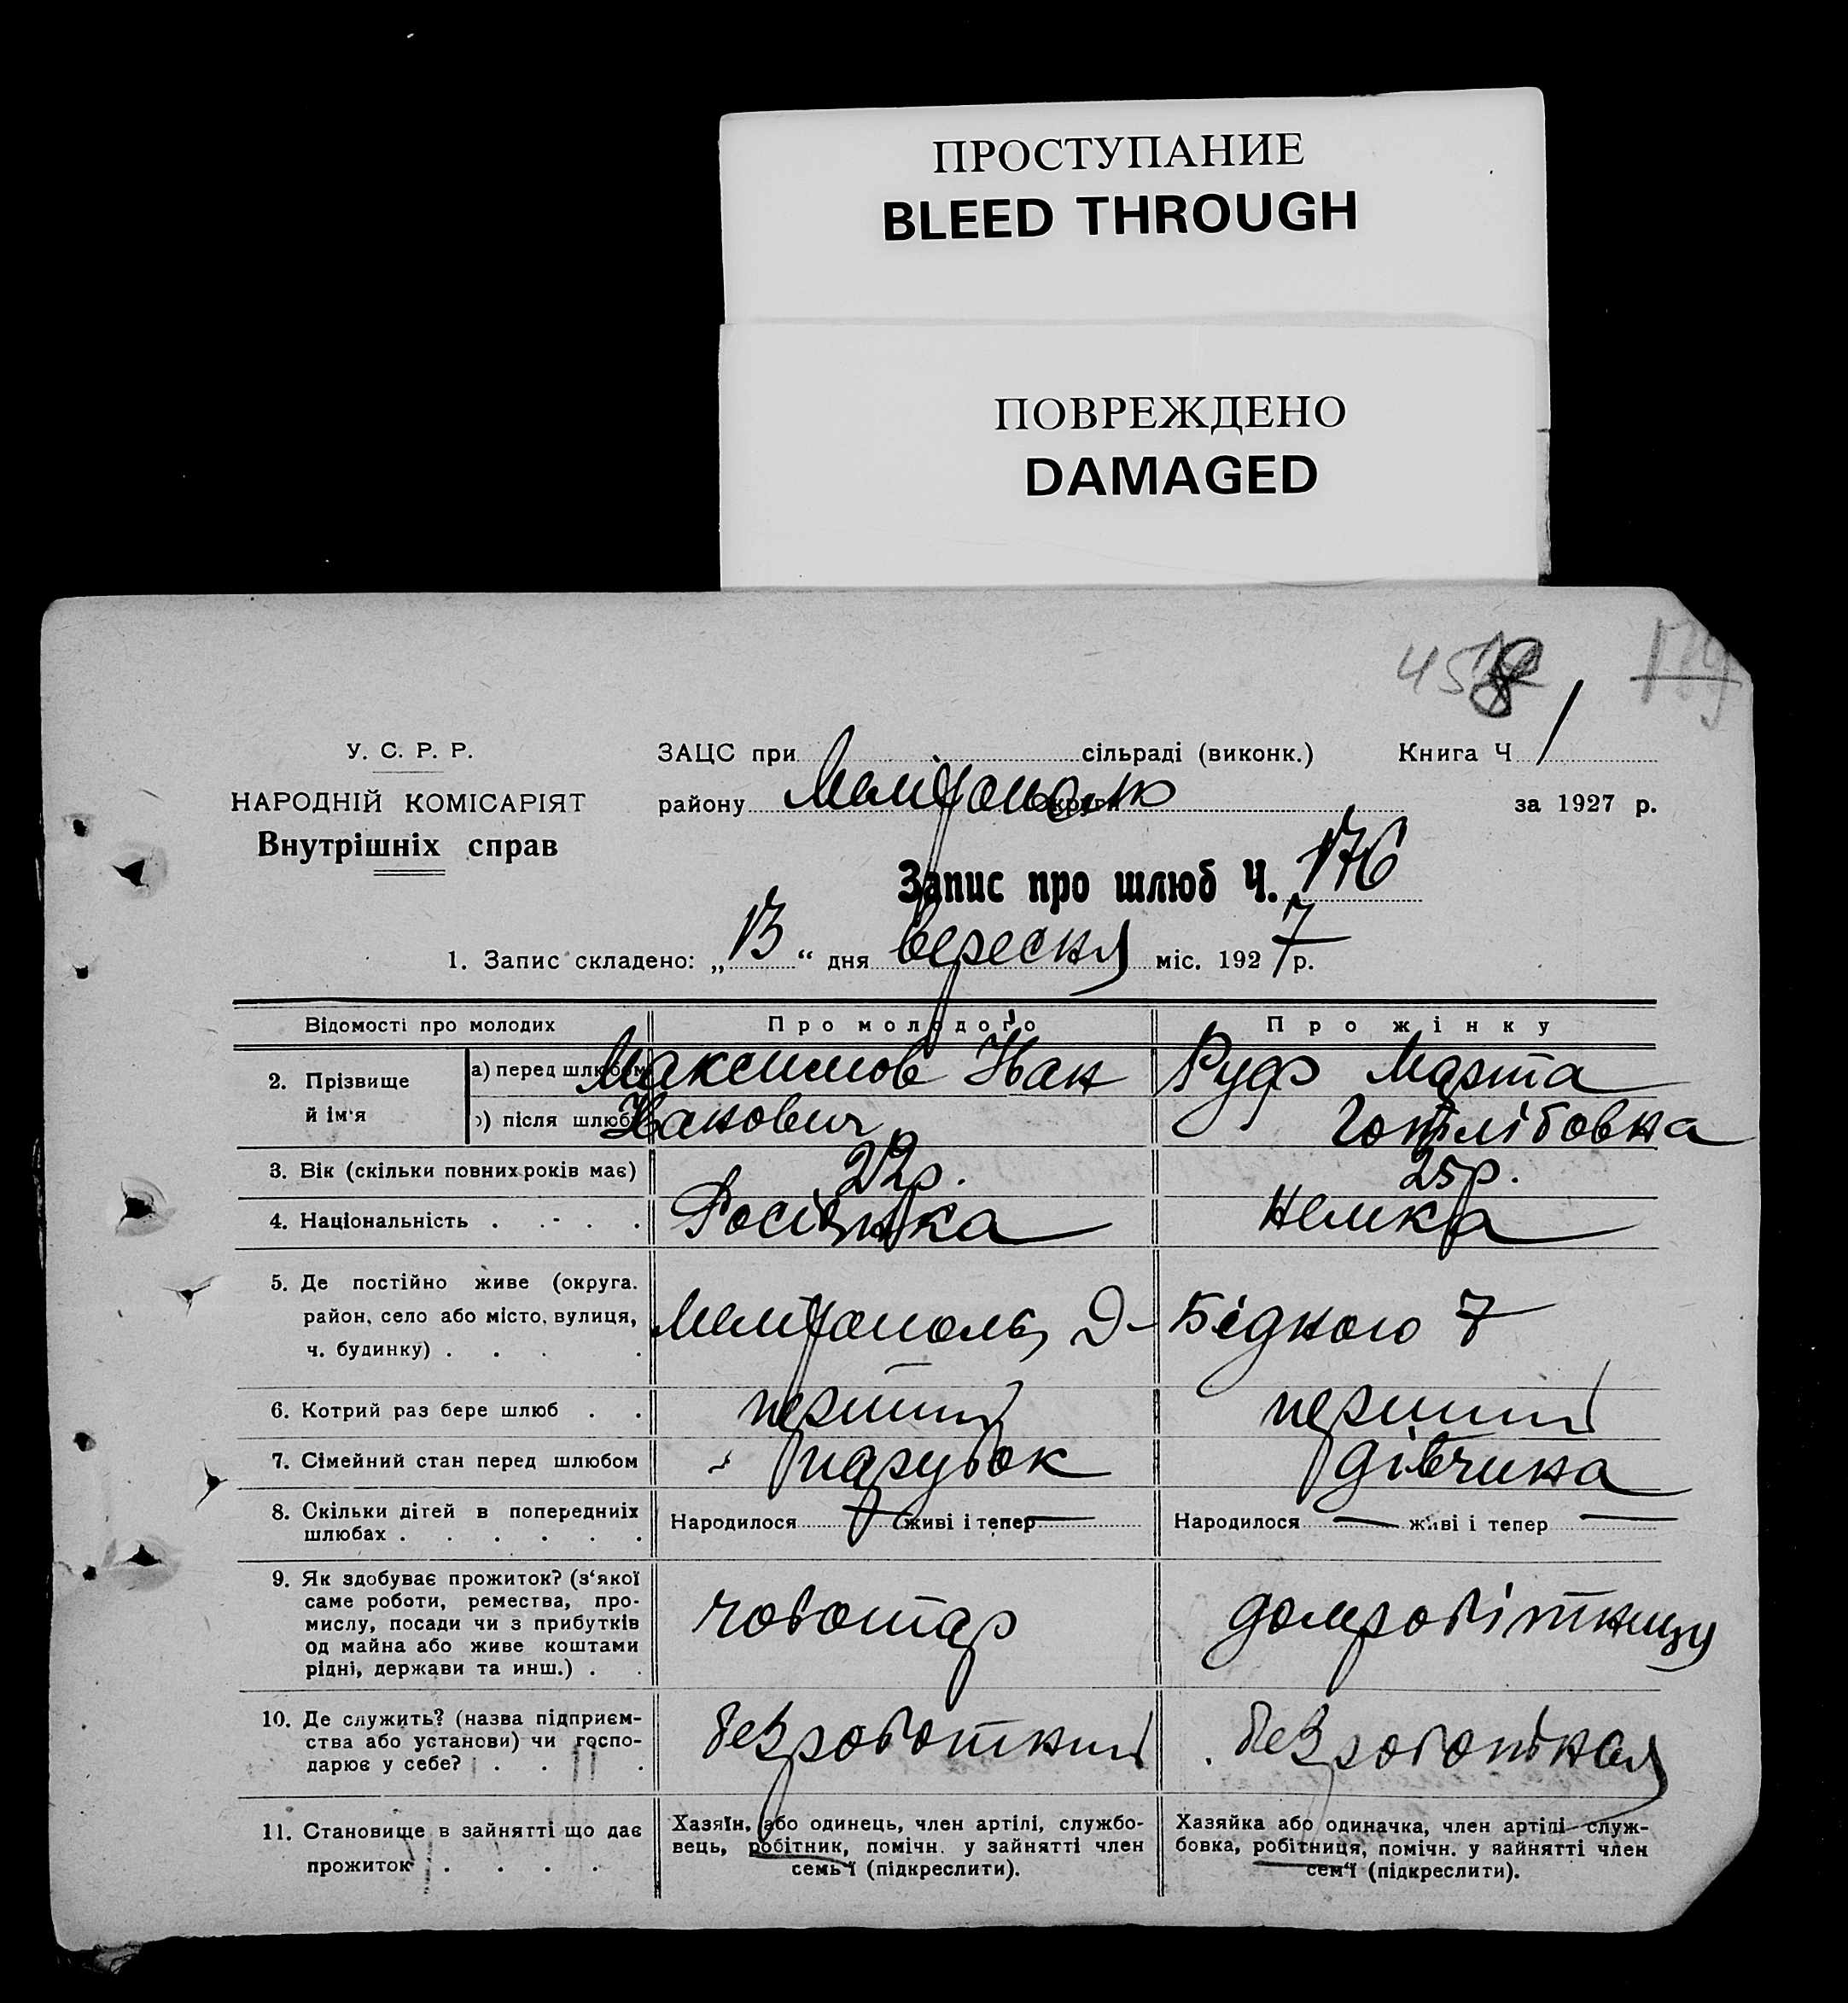 ПРОСТУПАНИЕ
BLEED THROUGH
ПОВРЕЖДЕНО
DAMAGED
У. С. Р. Р.
НАРОДНІЙ КОМІСАРІЯТ
Внутрішніх справ
ЗАЦС при сільраді (виконк.) Книга Ч 1
району Меліто округи за 1927 р.
Запис про шлюб Ч. 176
1. Запис складено: „13“ дня вересня міс. 1927 р.
Відомості про молодих Про молодого Про жінку
2. Прізвище й ім'я а) перед шлюбом Максимов Іван Руф Марта
б) після шлюбу Іванович Готлібовна
3. Вік (скільки повних років має) 22р. 25р.
4. Національність . . - . . Росіянка Немка
5. Де постійно живе (округа.
район, село або місто, вулиця,
ч. будинку) . . . . Мелітополь, Д-Бідного 7
6. Котрий раз бере шлюб . . перший перший
7. Сімейний стан перед шлюбом парубок дівчина
8. Скільки дітей в попередніїх
шлюбах . . . . . . Народилося — живі і тепер — Народилося — живі і тепер —
9. Як здобуває прожиток? (з'якої
саме роботи, ремества, про-
мислу, посади чи з прибутків
од майна або живе коштами
рідні, держави та инш.) . . чоботар домробітницу
10. Де служить? (назва підприєм-
ства або установи) чи госпо-
дарює у себе? . . . безроботний безроботная
11. Становище в зайнятті що дає
прожиток . . . . .
Хазяїн, або одинець, член артілі, службо-
вець, робітник, помічн. у зайнятті член
семьї (підкреслити).
Хазяйка або одиначка, член артілі служ-
бовка, робітниця, помічн. у зайнятті член
сем'ї (підкреслити).